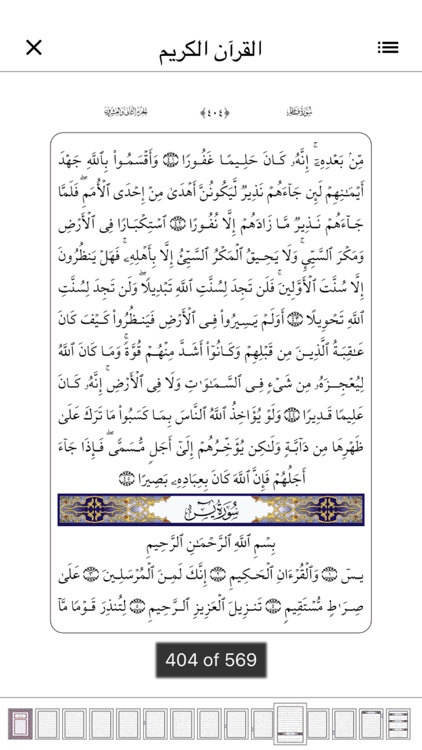 القرآن الكريم
سُورَةُ فَاطِرٍ ﴿٤٠٤﴾ الجزء الثاني والعشرون
مِّنۢ بَعۡدِهِۦٓۚ إِنَّهُۥ كَانَ حَلِيمًا غَفُورٗا ۝٤١ وَأَقۡسَمُواْ بِٱللَّهِ جَهۡدَ
أَيۡمَٰنِهِمۡ لَئِن جَآءَهُمۡ نَذِيرٞ لَّيَكُونُنَّ أَهۡدَىٰ مِنۡ إِحۡدَى ٱلۡأُمَمِۖ فَلَمَّا
جَآءَهُمۡ نَذِيرٞ مَّا زَادَهُمۡ إِلَّا نُفُورًا ۝٤٢ ٱسۡتِكۡبَارٗا فِي ٱلۡأَرۡضِ
وَمَكۡرَ ٱلسَّيِّيِٕۚ وَلَا يَحِيقُ ٱلۡمَكۡرُ ٱلسَّيِّئُ إِلَّا بِأَهۡلِهِۦۚ فَهَلۡ يَنظُرُونَ
إِلَّا سُنَّتَ ٱلۡأَوَّلِينَۚ فَلَن تَجِدَ لِسُنَّتِ ٱللَّهِ تَبۡدِيلٗاۖ وَلَن تَجِدَ لِسُنَّتِ
ٱللَّهِ تَحۡوِيلًا ۝٤٣ أَوَلَمۡ يَسِيرُواْ فِي ٱلۡأَرۡضِ فَيَنظُرُواْ كَيۡفَ كَانَ
عَٰقِبَةُ ٱلَّذِينَ مِن قَبۡلِهِمۡ وَكَانُوٓاْ أَشَدَّ مِنۡهُمۡ قُوَّةٗۚ وَمَا كَانَ ٱللَّهُ
لِيُعۡجِزَهُۥ مِن شَيۡءٖ فِي ٱلسَّمَٰوَٰتِ وَلَا فِي ٱلۡأَرۡضِۚ إِنَّهُۥ كَانَ
عَلِيمٗا قَدِيرٗا ۝٤٤ وَلَوۡ يُؤَاخِذُ ٱللَّهُ ٱلنَّاسَ بِمَا كَسَبُواْ مَا تَرَكَ عَلَىٰ
ظَهۡرِهَا مِن دَآبَّةٖ وَلَٰكِن يُؤَخِّرُهُمۡ إِلَىٰٓ أَجَلٖ مُّسَمّٗىۖ فَإِذَا جَآءَ
أَجَلُهُمۡ فَإِنَّ ٱللَّهَ كَانَ بِعِبَادِهِۦ بَصِيرَۢا ۝٤٥
سُورَةُ يسٓ
بِسۡمِ ٱللَّهِ ٱلرَّحۡمَٰنِ ٱلرَّحِيمِ
يسٓ ۝١ وَٱلۡقُرۡءَانِ ٱلۡحَكِيمِ ۝٢ إِنَّكَ لَمِنَ ٱلۡمُرۡسَلِينَ ۝٣ عَلَىٰ
صِرَٰطٖ مُّسۡتَقِيمٖ ۝٤ تَنزِيلَ ٱلۡعَزِيزِ ٱلرَّحِيمِ ۝٥ لِتُنذِرَ قَوۡمٗا مَّآ
404 of 569